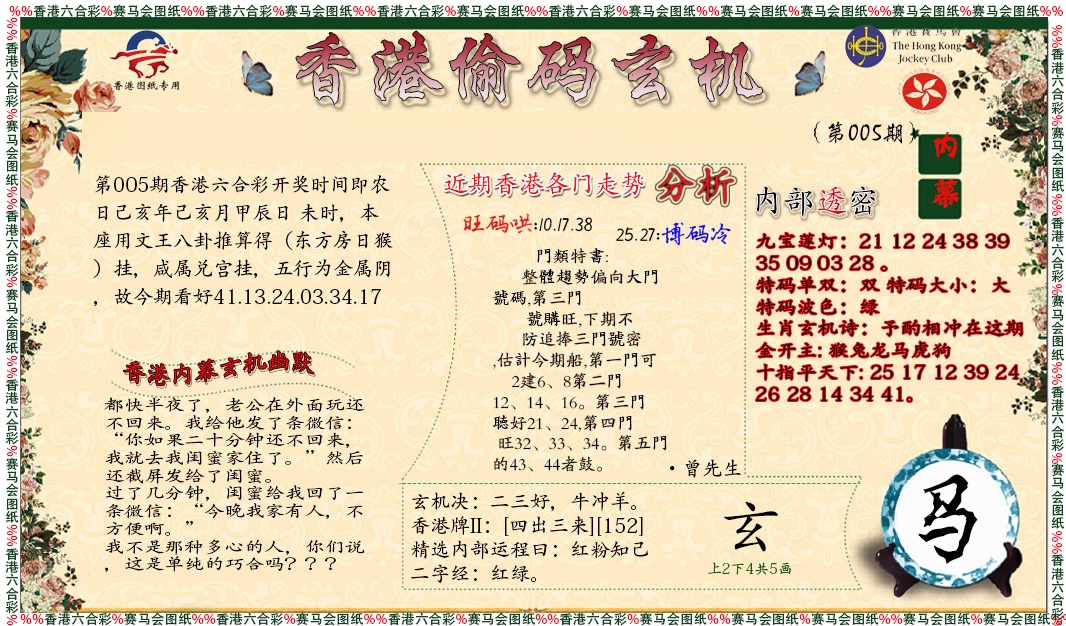 %%香港六合彩%赛马会图纸%%香港六合彩%赛马会图纸%%香港六合彩%赛马会图纸%%香港六合彩%赛马会图纸%%香港六合彩%赛马会图纸%%香港六合彩%赛马会图纸%%香港六合彩%赛马会图纸%%
香港图纸专用
香港偷码玄机
香港賽馬會
The Hong Kong
Jockey Club
(第005期)
内
幕
第005期香港六合彩开奖时间即农
日己亥年己亥月甲辰日 未时，本
座用文王八卦推算得（东方房日猴
）挂，咸属兑宫挂，五行为金属阴
，故今期看好41.13.24.03.34.17
香港内幕玄机幽默
都快半夜了，老公在外面玩还
不回来。我给他发了条微信：
“你如果二十分钟还不回来，
我就去我闺蜜家住了。”然后
还截屏发给了闺蜜。
过了几分钟，闺蜜给我回了一
条微信：“今晚我家有人，不
方便啊。”
我不是那种多心的人，你们说
，这是单纯的巧合吗？？？
近期香港各门走势 分析
旺码哄:10.17.38
25.27:博码冷
門類特書:
整體趨勢偏向大門
號碼,第三門
號購旺,下期不
防追捧三門號密
,估計今期船,第一門可
2建6、8第二門
12、14、16。第三門
聽好21、24,第四門
旺32、33、34。第五門
的43、44者鼓。
·曾先生
玄机决：二三好，牛冲羊。
香港牌II：[四出三来][152]
精选内部运程曰：红粉知己
二字经：红绿。
玄
上2下4共5画
内部透密
九宝莲灯：21 12 24 38 39
35 09 03 28 。
特码单双： 双 特码大小： 大
特码波色：绿
生肖玄机诗：予酌相冲在这期
金开主: 猴兔龙马虎狗
十指平天下: 25 17 12 39 24
26 28 14 34 41。
马
%%香港六合彩%赛马会图纸%%香港六合彩%赛马会图纸%%香港六合彩%赛马会图纸%%香港六合彩%赛马会图纸%
%%香港六合彩%赛马会图纸%%香港六合彩%赛马会图纸%%香港六合彩%赛马会图纸%%香港六合彩%赛马会图纸%
%%香港六合彩%赛马会图纸%%香港六合彩%赛马会图纸%%香港六合彩%赛马会图纸%%香港六合彩%赛马会图纸%%香港六合彩%赛马会图纸%%香港六合彩%赛马会图纸%%香港六合彩%赛马会图纸%%